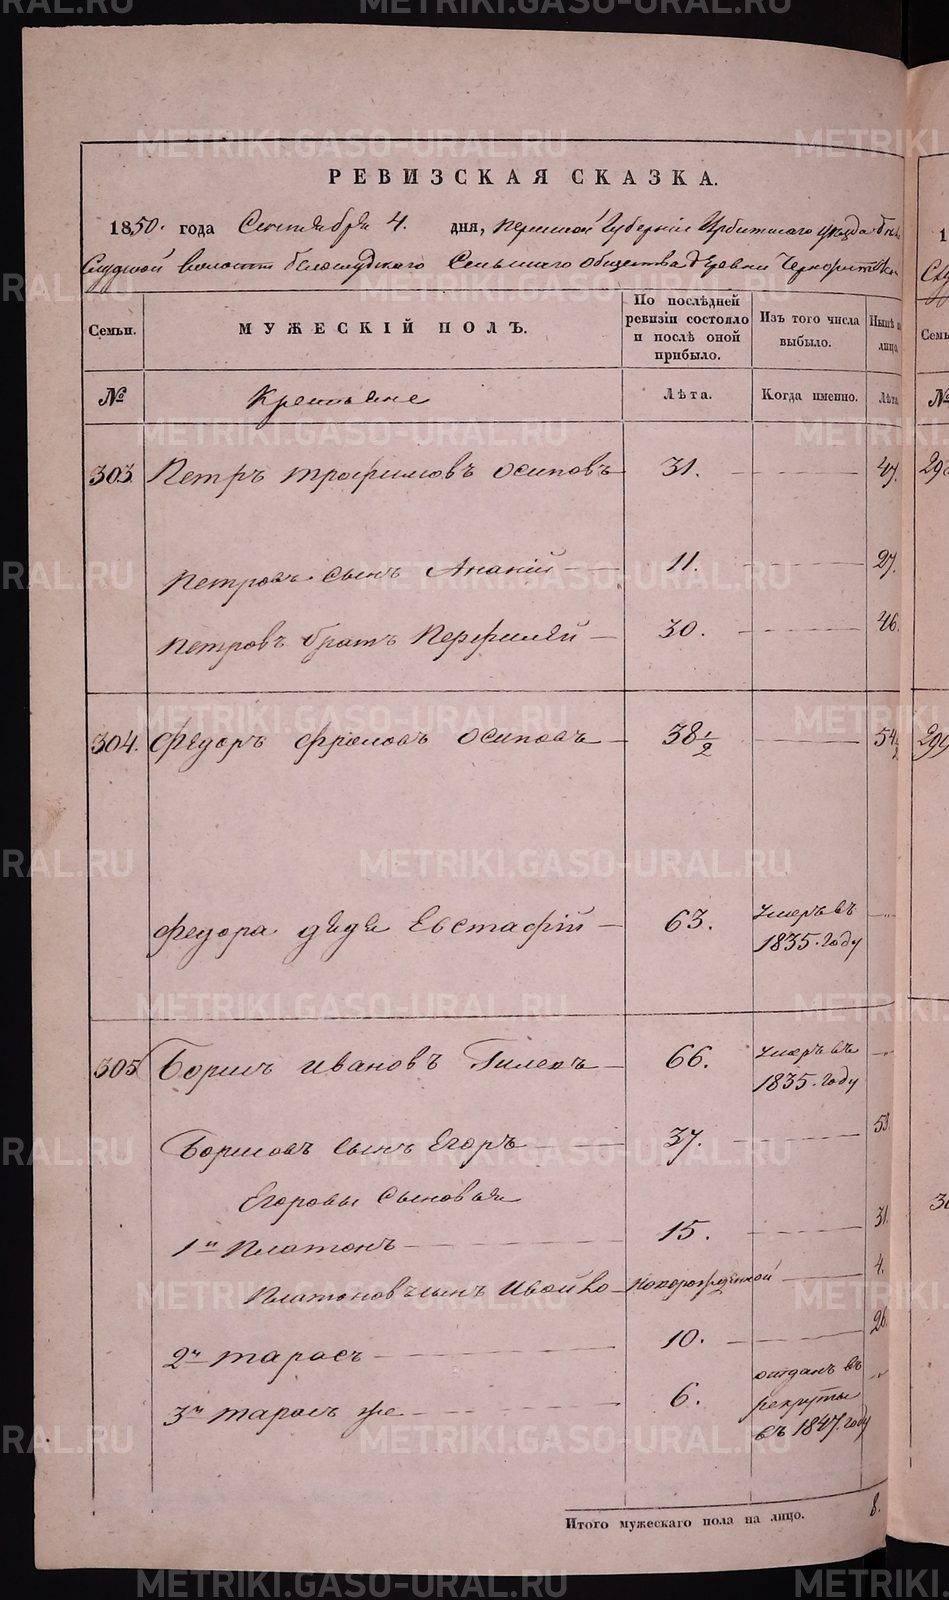 РЕВИЗСКАЯ СКАЗКА.
1850. года Сентября 4. дня, Пермской Губернии Ирбитскаго уѣзда Бѣло
Слудской волости Бѣлослудскаго Сельскаго Общества деревни
По послѣдней ревизіи состояло и послѣ оной прибыло.
Изъ того числа выбыло.
Нынѣ на лицо.
Семьи.
МУЖЕСКІЙ ПОЛЪ.
№
Крестьяне
Лѣта.
Когда именно.
Лѣта.
303. Петръ Трофимовъ Осиповъ 31. 47.
Петровъ сынъ Ананій 11. 27.
Петровъ братъ Перфилей 30. 46.
304. Федоръ Фроловъ Осиповъ 38 1/2 54 1/2
Федора дядя Евстафій 63. умеръ въ 1835. году
305. Борисъ Ивановъ Гилевъ 66. умеръ въ 1835. году
Борисовъ сынъ Егоръ 37. 53.
Егоровы сыновья
1й Платонъ 15. 31.
Платоновъ сынъ новорожденной 4.
2й Тарасъ 10. 26.
3й Тарасъ же 6. отданъ въ рекруты въ 1847. году
Итого мужескаго пола на лицо. 8.
METRIKI.GASO-URAL.RU